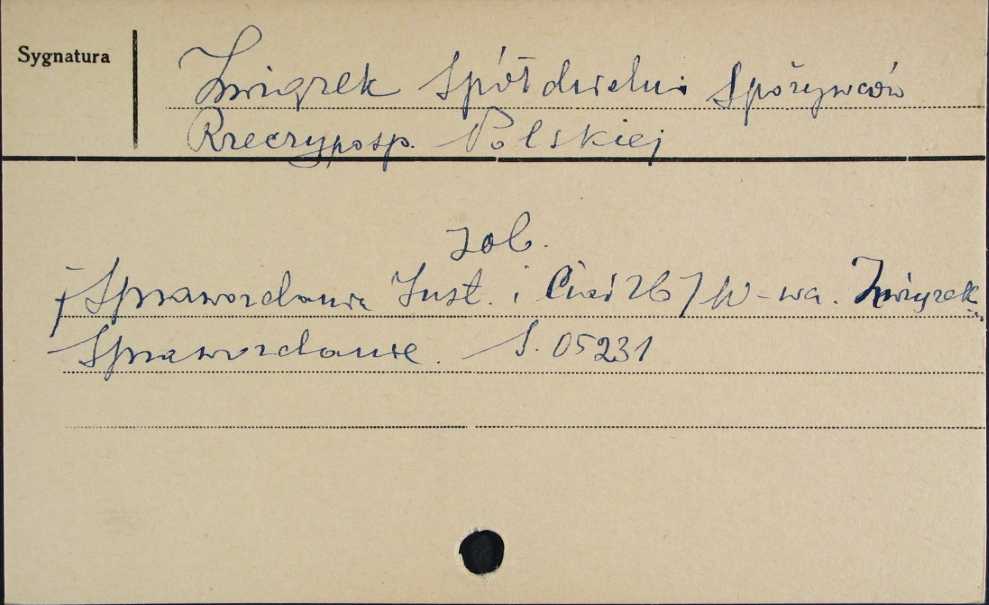 Sygnatura
Związek Spółdzielni Spożywców
Rzeczyposp. Polskiej
zob.
[Sprawozdania Inst. i Ciał Zb] W-wa. Związek...
Sprawozdanie. S. 05231